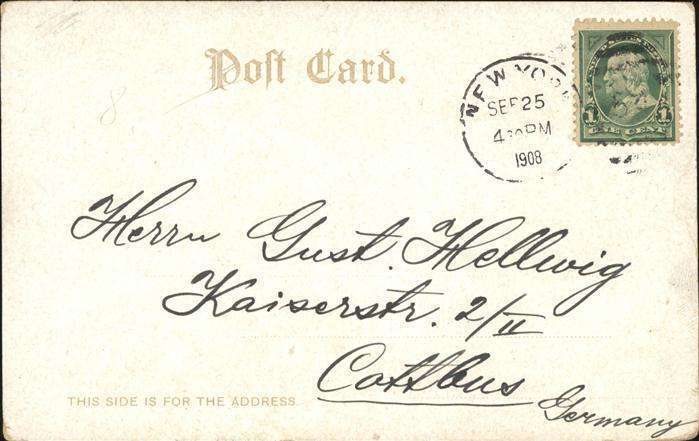 Post Card.
NEW YORK
SEP 25
4 30 PM
1908
1 ONE CENT 1
Herrn Gust. Hellwig
Kaiserstr. 2/II
Cottbus
Germany
THIS SIDE IS FOR THE ADDRESS.